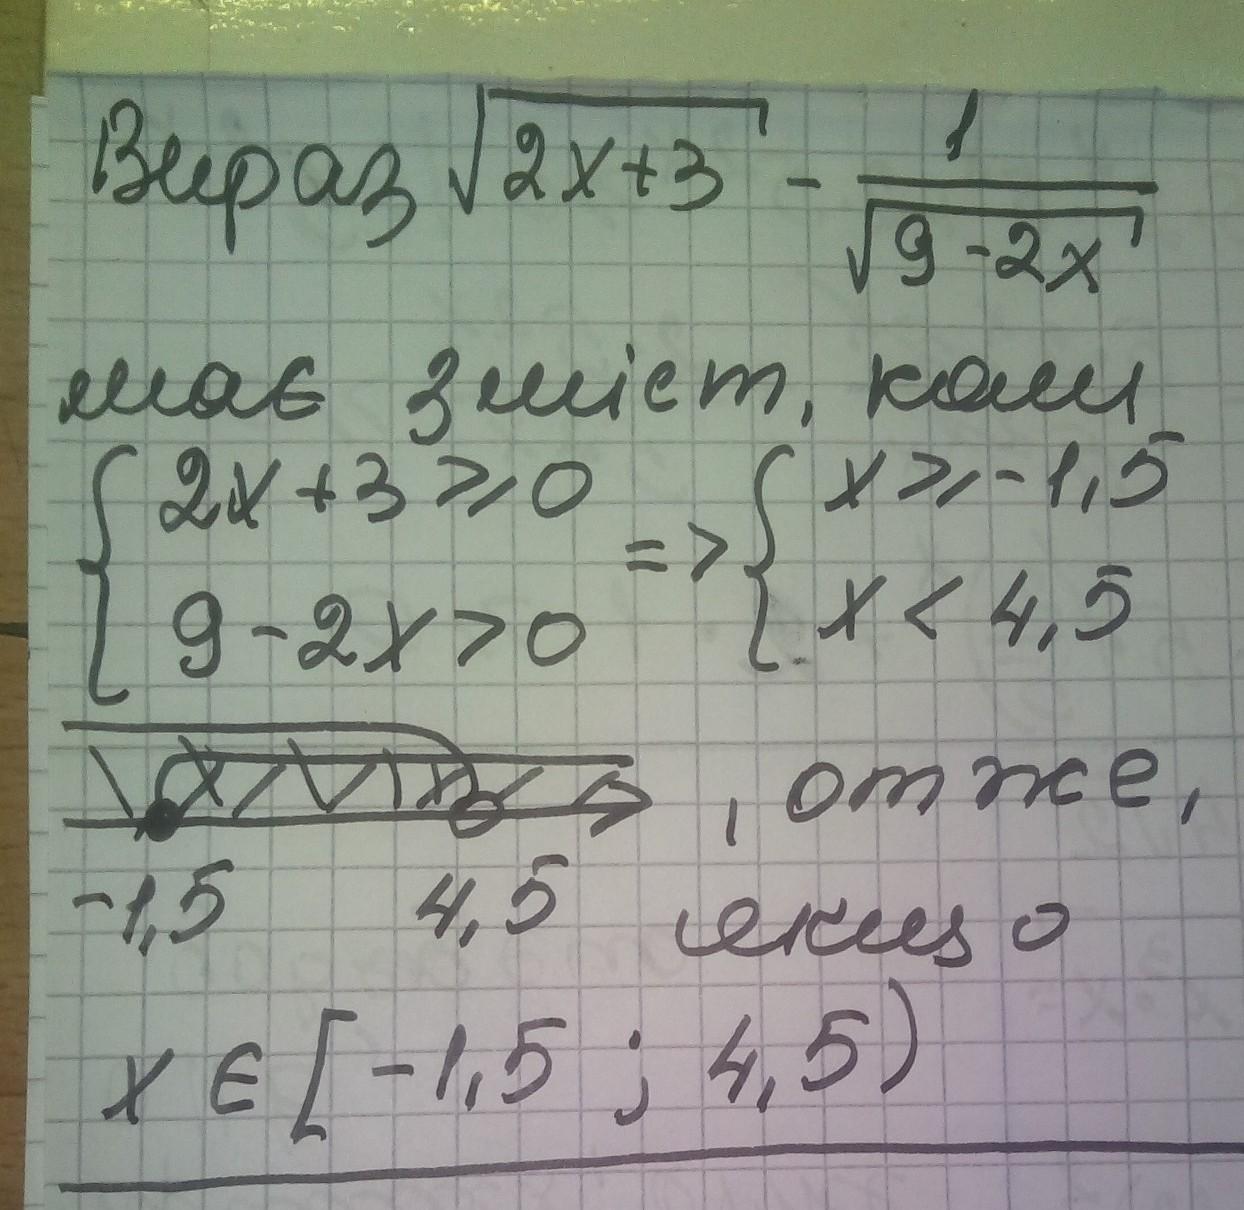 Вираз √(2x+3) - 1/√(9-2x)
має зміст, коли
{ 2x+3 ⩾ 0
9-2x > 0
=> { x ⩾ -1,5
x < 4,5
-1,5 4,5
, отже,
якщо
x ∈ [-1,5 ; 4,5)